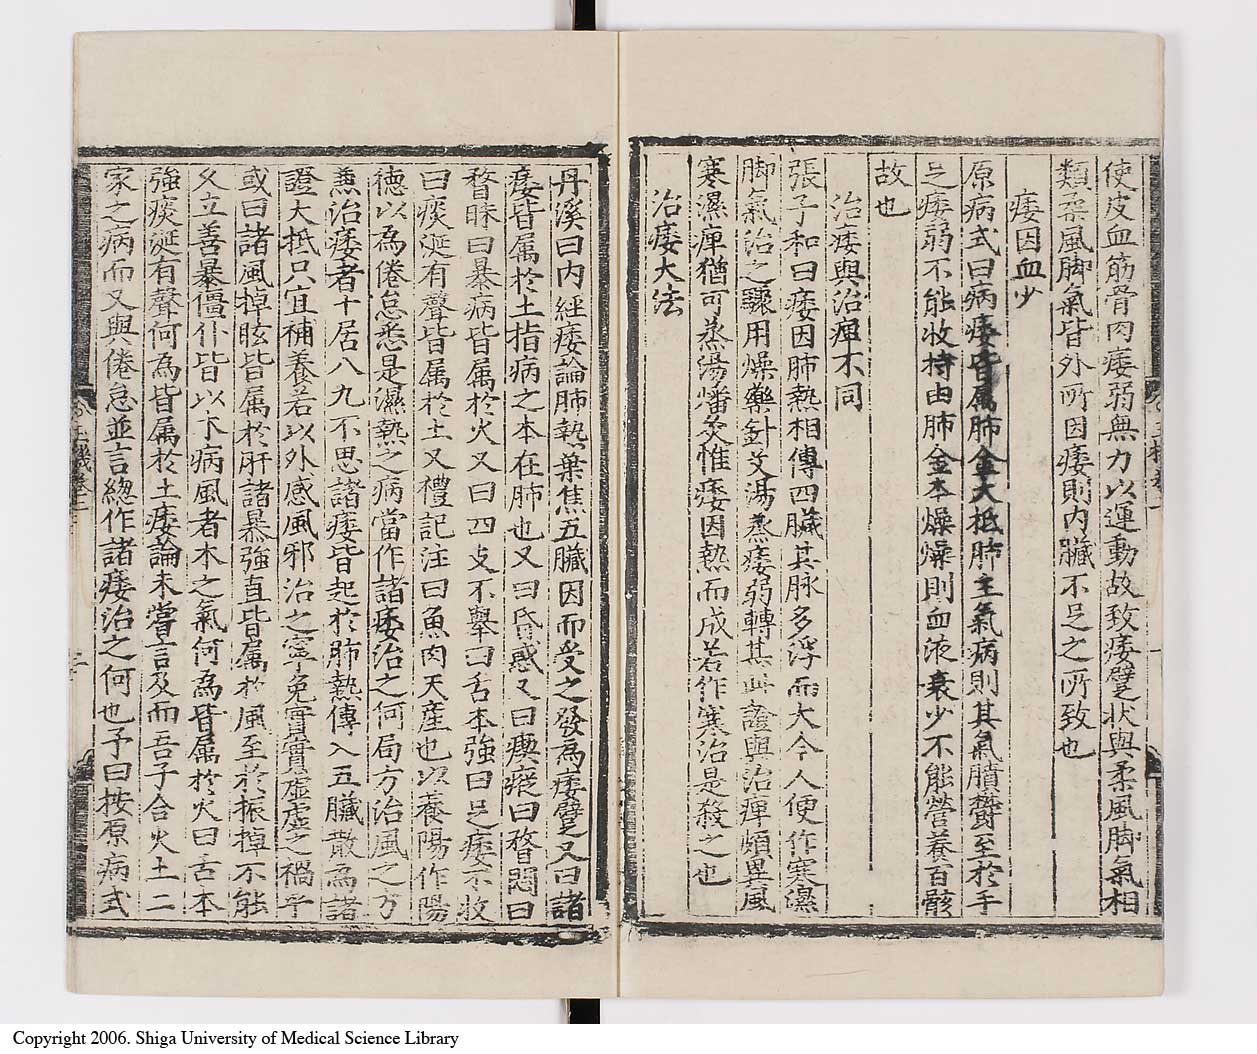 使皮血筋骨肉痿弱無力以運動故致痿躄狀與柔風脚氣相
類柔風脚氣皆外所因痿則内臟不足之所致也
痿因血少
原病式曰病痿皆属肺金大抵肺主氣病則其氣膹欝至於手
足痿弱不能收持由肺金本燥燥則血液衰少不能營養百骸
故也
治痿與治痺不同
張子和曰痿因肺熱相傳四臟其脉多浮而大今人便作寒濕
脚氣治之驟用燥藥針艾湯蒸痿弱轉甚此證與治痺頗異風
寒濕痺猶可蒸湯燔灸惟痿因熱而成若作寒治是殺之也
治痿大法
丹溪曰内經痿論肺熱葉焦五臟因而受之發為痿躄又曰諸
痿皆属於土指病之本在肺也又曰昏惑又曰瘈瘲曰瞀悶曰
瞀昧曰暴病皆属於火又曰四支不擧曰舌本強曰足痿不收
曰痰涎有聲皆属於土又禮記注曰魚肉天產也以養陽作陽
德以為倦怠悉是濕熱之病當作諸痿治之何局方治風之方
兼治痿者十居八九不思諸痿皆起於肺熱傳入五臟散為諸
證大抵只宜補養若以外感風邪治之寧免實實虛虛之禍乎
或曰諸風掉眩皆属於肝諸暴強直皆属於風至於振掉不能
久立善暴僵仆皆以為病風者本之氣何為皆属於火曰舌本
強痰涎有聲何為皆属於土痿論未嘗言及而吾子合火土二
家之病而又與倦怠並言總作諸痿治之何也予曰按原病式
二
Copyright 2006. Shiga University of Medical Science Library